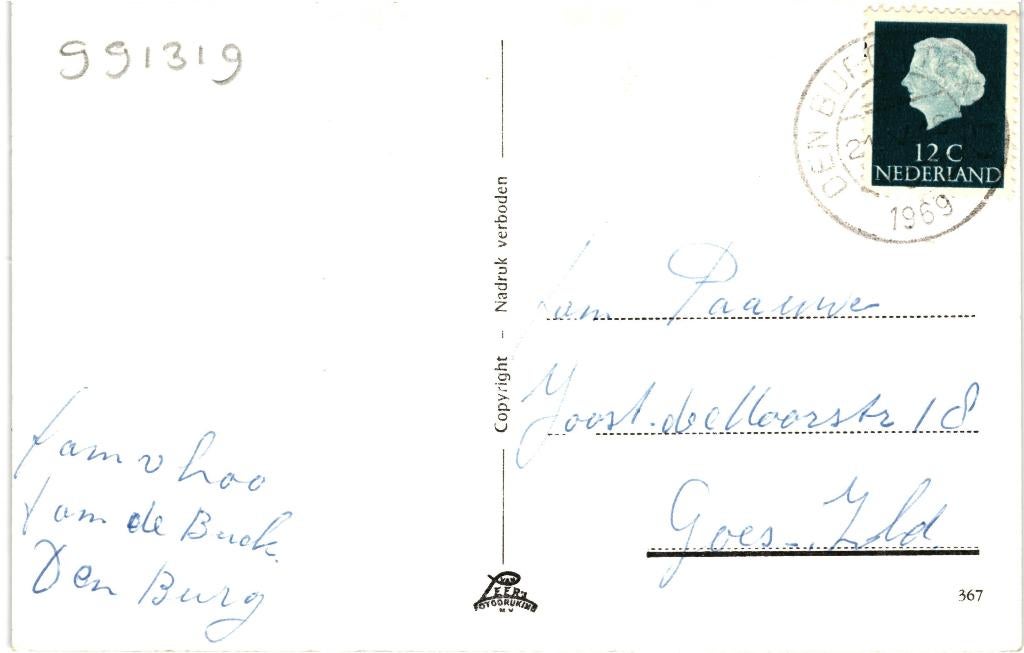 991319
12 C
NEDERLAND
DEN BURG
1969
Copyright - Nadruk verboden
fam Paauwe
Joost. de Moorstr 18
Goes - Zld
fam v hoo
fam de Buck.
Den Burg
VAN
LEER'S
FOTODRUKIND
N.V.
367